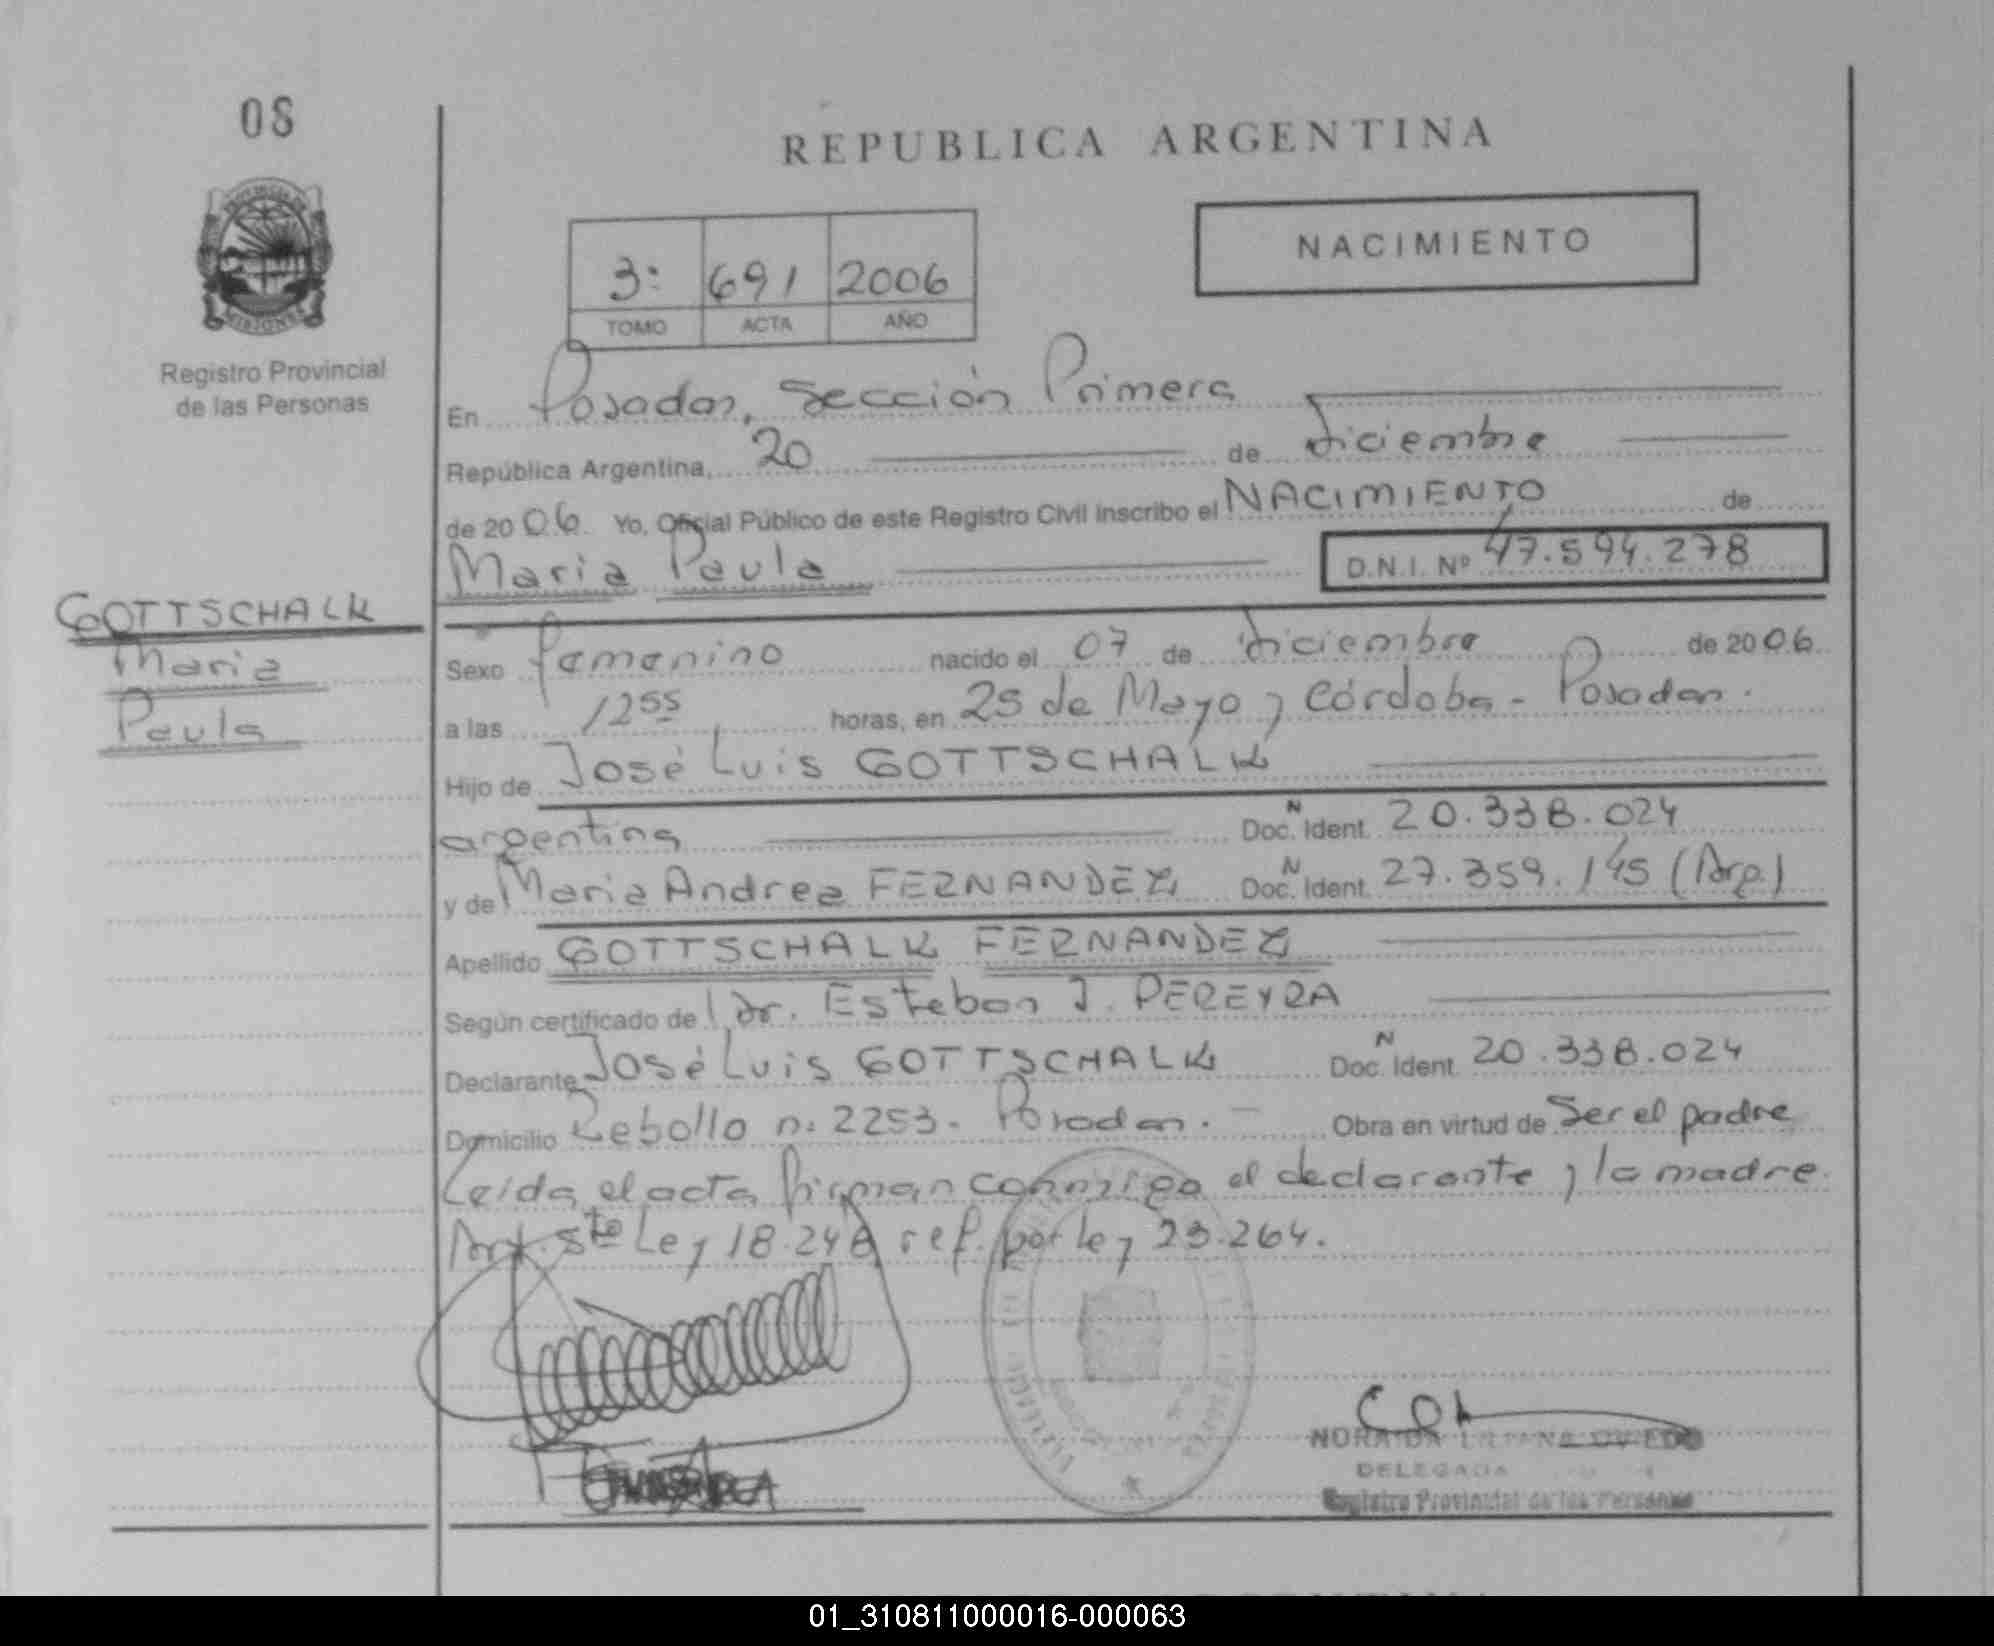 08
REPUBLICA ARGENTINA
PROVINCIA DE
MISIONES
NACIMIENTO
3: 691 2006
TOMO ACTA AÑO
Registro Provincial
de las Personas
En Posadas, Sección Primera
República Argentina, 20 de diciembre
de 2006 Yo, Oficial Público de este Registro Civil inscribo el NACIMIENTO de
Maria Paula D.N.I. Nº 47.594.278
GOTTSCHALK
Maria
Paula
Sexo femenino nacido el 07 de diciembre de 2006
a las 12 55 horas, en 25 de Mayo y Córdoba - Posadas.
Hijo de José Luis GOTTSCHALK
argentina Doc. N Ident. 20.338.024
y de Maria Andrea FERNANDEZ Doc. N Ident. 27.359.145 (Arg.)
Apellido GOTTSCHALK FERNANDEZ
Según certificado de Dr. Esteban J. PEREYRA
Declarante José Luis GOTTSCHALK Doc. N Ident. 20.338.024
Domicilio Rebollo n: 2253. Posadas. - Obra en virtud de Ser el padre
Leida el acta firman conmigo el declarante y la madre.
Art. 5to Ley 18.248 ref. por ley 23.264.
DELEGADA
Registro Provincial de las Personas
01_310811000016-000063